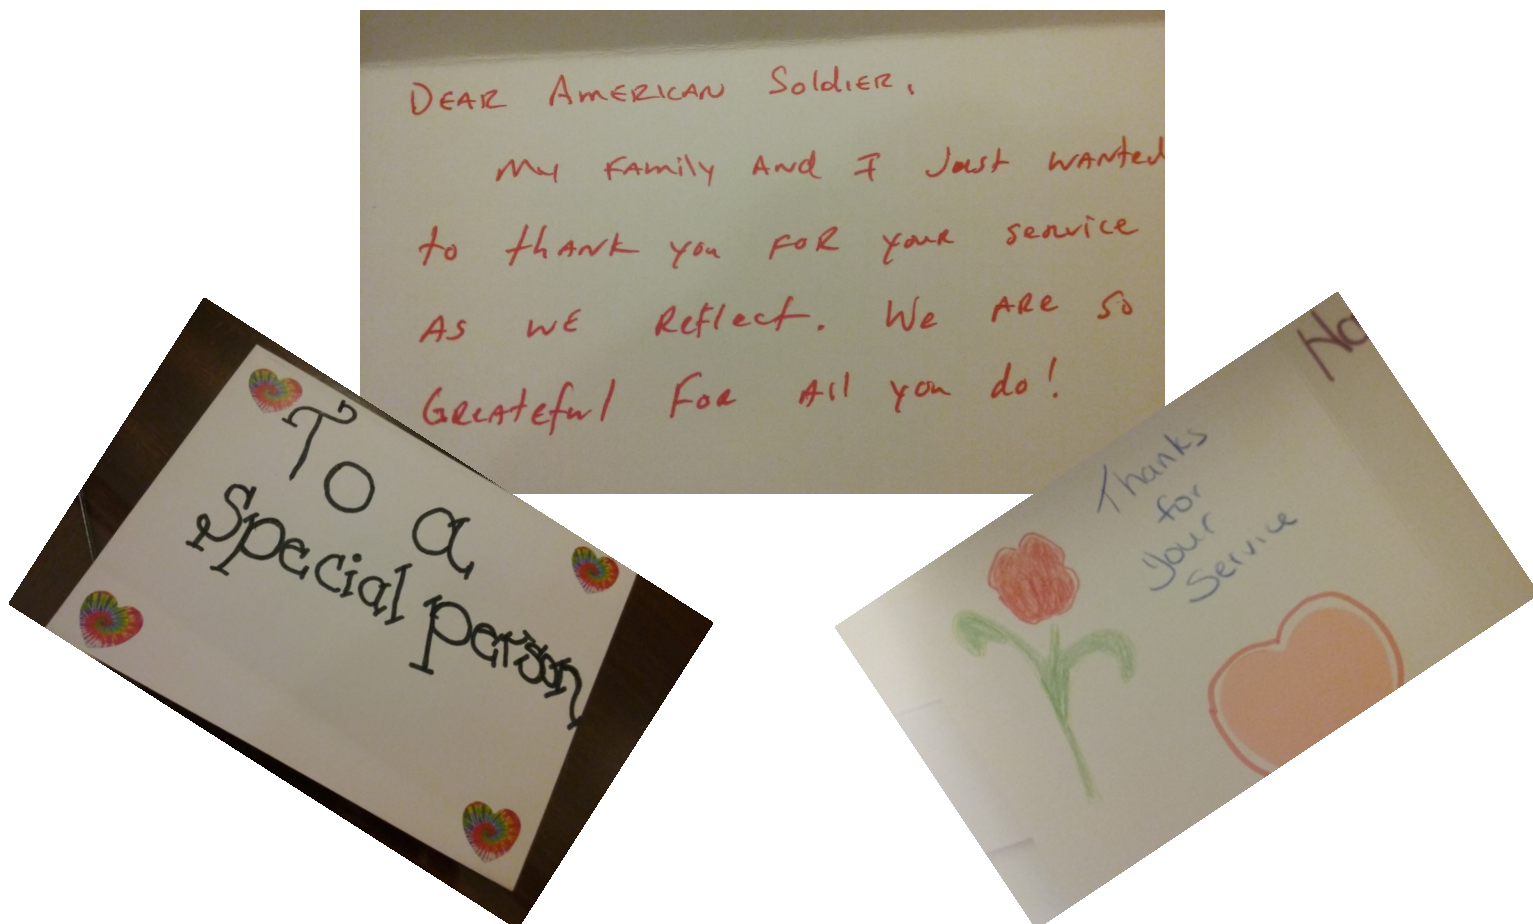 Dear American Soldier,
My family and I just wanted
to thank you for your service
as we reflect. We are so
grateful for all you do!
To a
special person
Thanks
for
your
Service